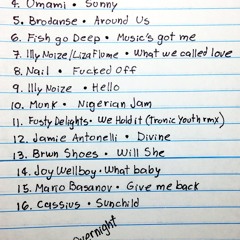 4. Umami • Sunny
5. Brodanse • Around Us
6. Fish go Deep • Music's got me
7. Illy Noize/Liza Flume • What we called love
8. Nail • Fucked Off
9. Illy Noize • Hello
10. Munk • Nigerian Jam
11. Fusty Delights • We Hold it (Tronic Youth rmx)
12. Jamie Antonelli • Divine
13. Brwn Shoes • Will She
14. Joy Wellboy • What baby
15. Mario Basanov • Give me back
16. Cassius • Sunchild
overnight